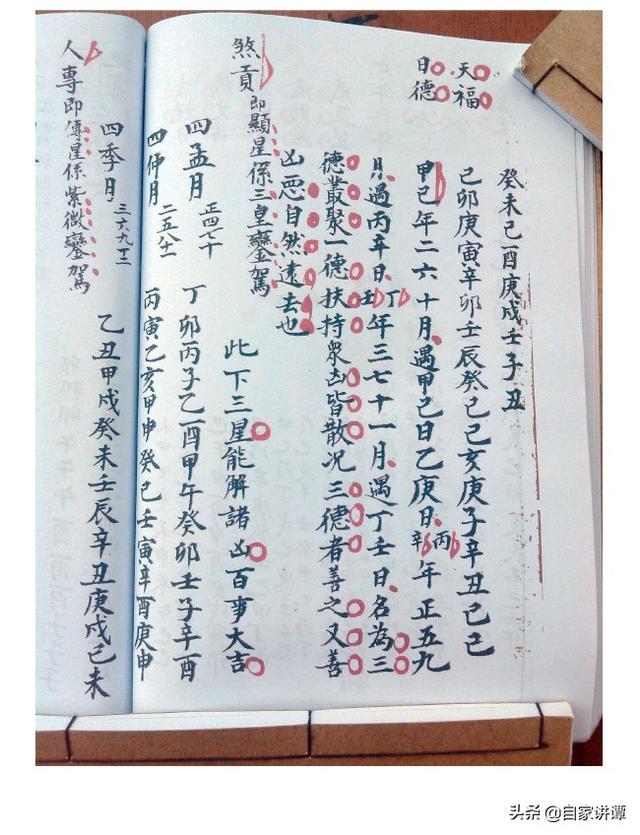 癸未己酉庚戌壬子丑
天福
己卯庚寅辛卯壬辰癸己己亥庚子辛丑己己
日德
甲己年二六十月遇甲己日乙庚日丙辛年正五九
月遇丙辛日丁壬年三七十一月遇丁壬日名為三
德叢聚一德扶持眾凶皆散况三德者善之又善
凶惡自然遠去也
煞貢即顯星係三皇鑾駕
此下三星能解諸凶百事大吉
四孟月 正四七十 丁卯丙子乙酉甲午癸卯壬子辛酉
四仲月 二五八十一 丙寅乙亥甲申癸已壬寅辛酉庚申
四季月 三六九十二 乙丑甲戌癸未壬辰辛丑庚戌己未
人專即傳星係紫微鑾駕
头条 @自家讲谭